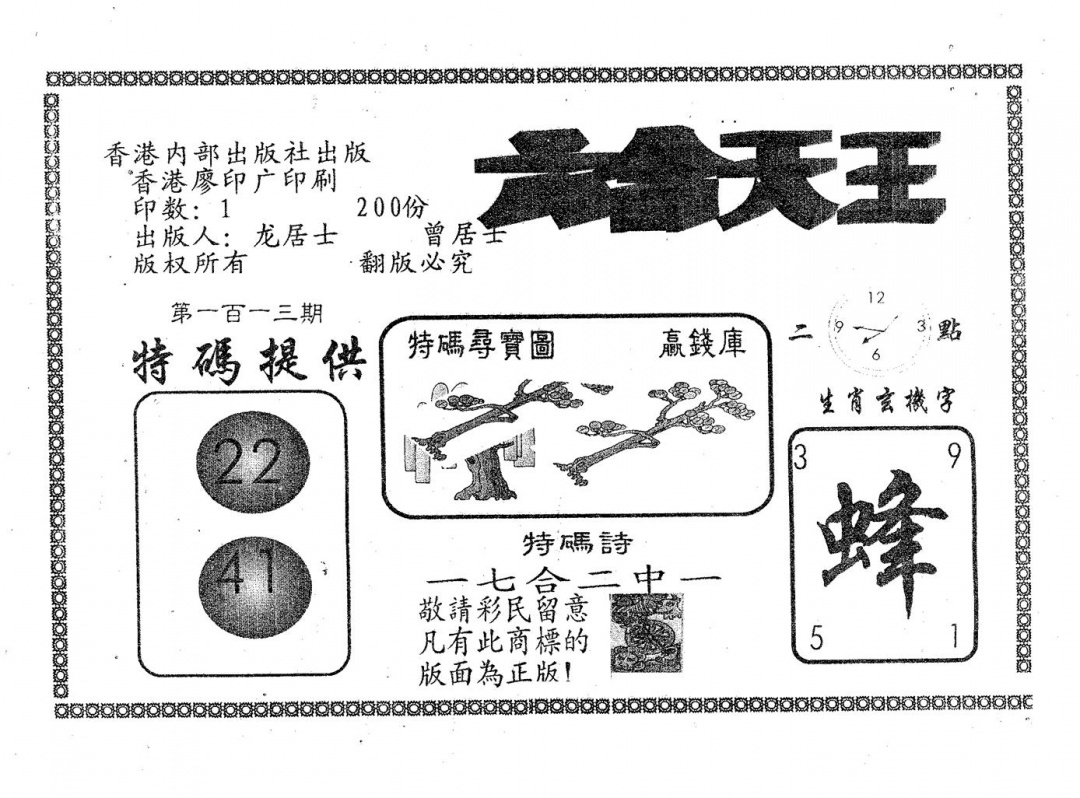 香港内部出版社出版
香港廖印广印刷
印数: 1 200份
出版人: 龙居士 曾居士
版权所有 翻版必究
六合天王
第一百一三期
特碼提供
22
41
特碼尋寶圖 贏錢庫
二 點
12
9 3
6
生肖玄機字
3 9
蜂
5 1
特碼詩
一七合二中一
敬請彩民留意
凡有此商標的
版面為正版!